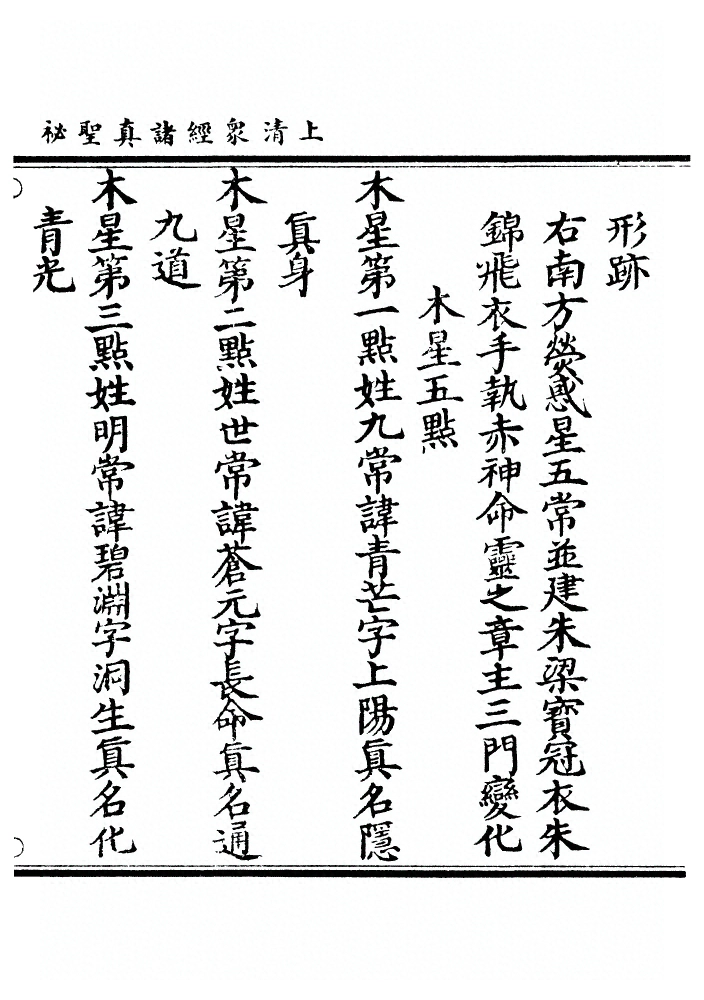 上清衆經諸真聖祕
形跡
右南方熒惑星五常並建朱梁寶冠衣朱
錦飛衣手執赤神命靈之章主三門變化
木星五點
木星第一點姓九常諱青芒字上陽眞名隱
眞身
木星第二點姓世常諱蒼元字長命眞名通
九道
木星第三點姓明常諱碧淵字洞生眞名化
青光